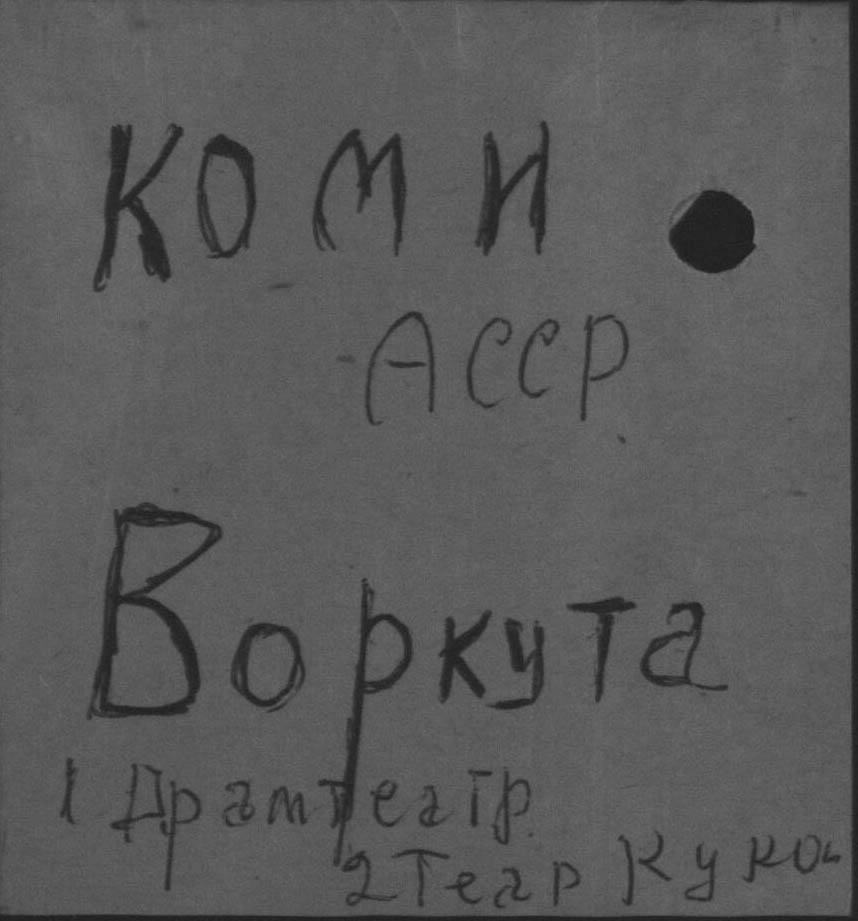 Коми
АССР
Воркута
1 Драмтеатр
2 Театр Кукол